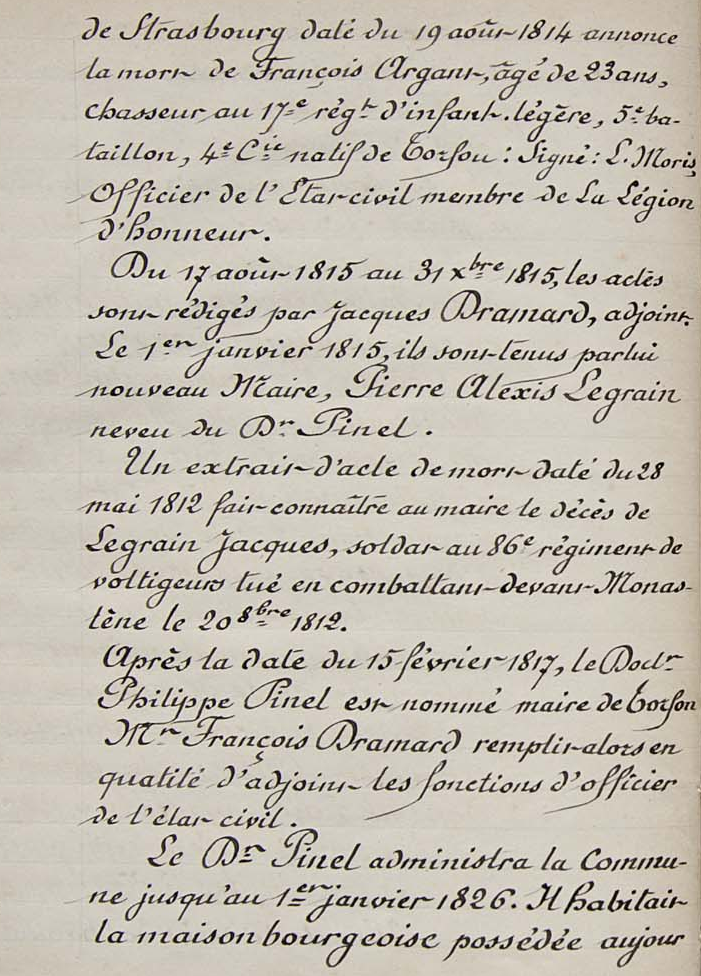 de Strasbourg daté du 19 août 1814 annonce
la mort de François Argant, âgé de 23 ans,
chasseur au 17e régt d'infant. légère, 5e ba-
taillon, 4e Cie natif de Torfou : Signé : L. Moris,
Officier de l'Etat civil membre de La Légion
d'honneur.
Du 17 août 1815 au 31 Xbre 1815, les actes
sont rédigés par Jacques Dramard, adjoint.
Le 1er janvier 1815, ils sont tenus par lui
nouveau Maire, Pierre Alexis Legrain
neveu du Dr Pinel.
Un extrait d'acte de mort daté du 28
mai 1812 fait connaître au maire le décès de
Legrain Jacques, soldat au 86e régiment de
voltigeurs tué en combattant devant Monas-
tène le 20 8bre 1812.
Après la date du 15 février 1817, le Doctr
Philippe Pinel est nommé maire de Torfou
Mr François Dramard remplit alors en
qualité d'adjoint les fonctions d'officier
de l'état civil.
Le Dr Pinel administra la Commu-
ne jusqu'au 1er janvier 1826. Il habitait
la maison bourgeoise possédée aujour